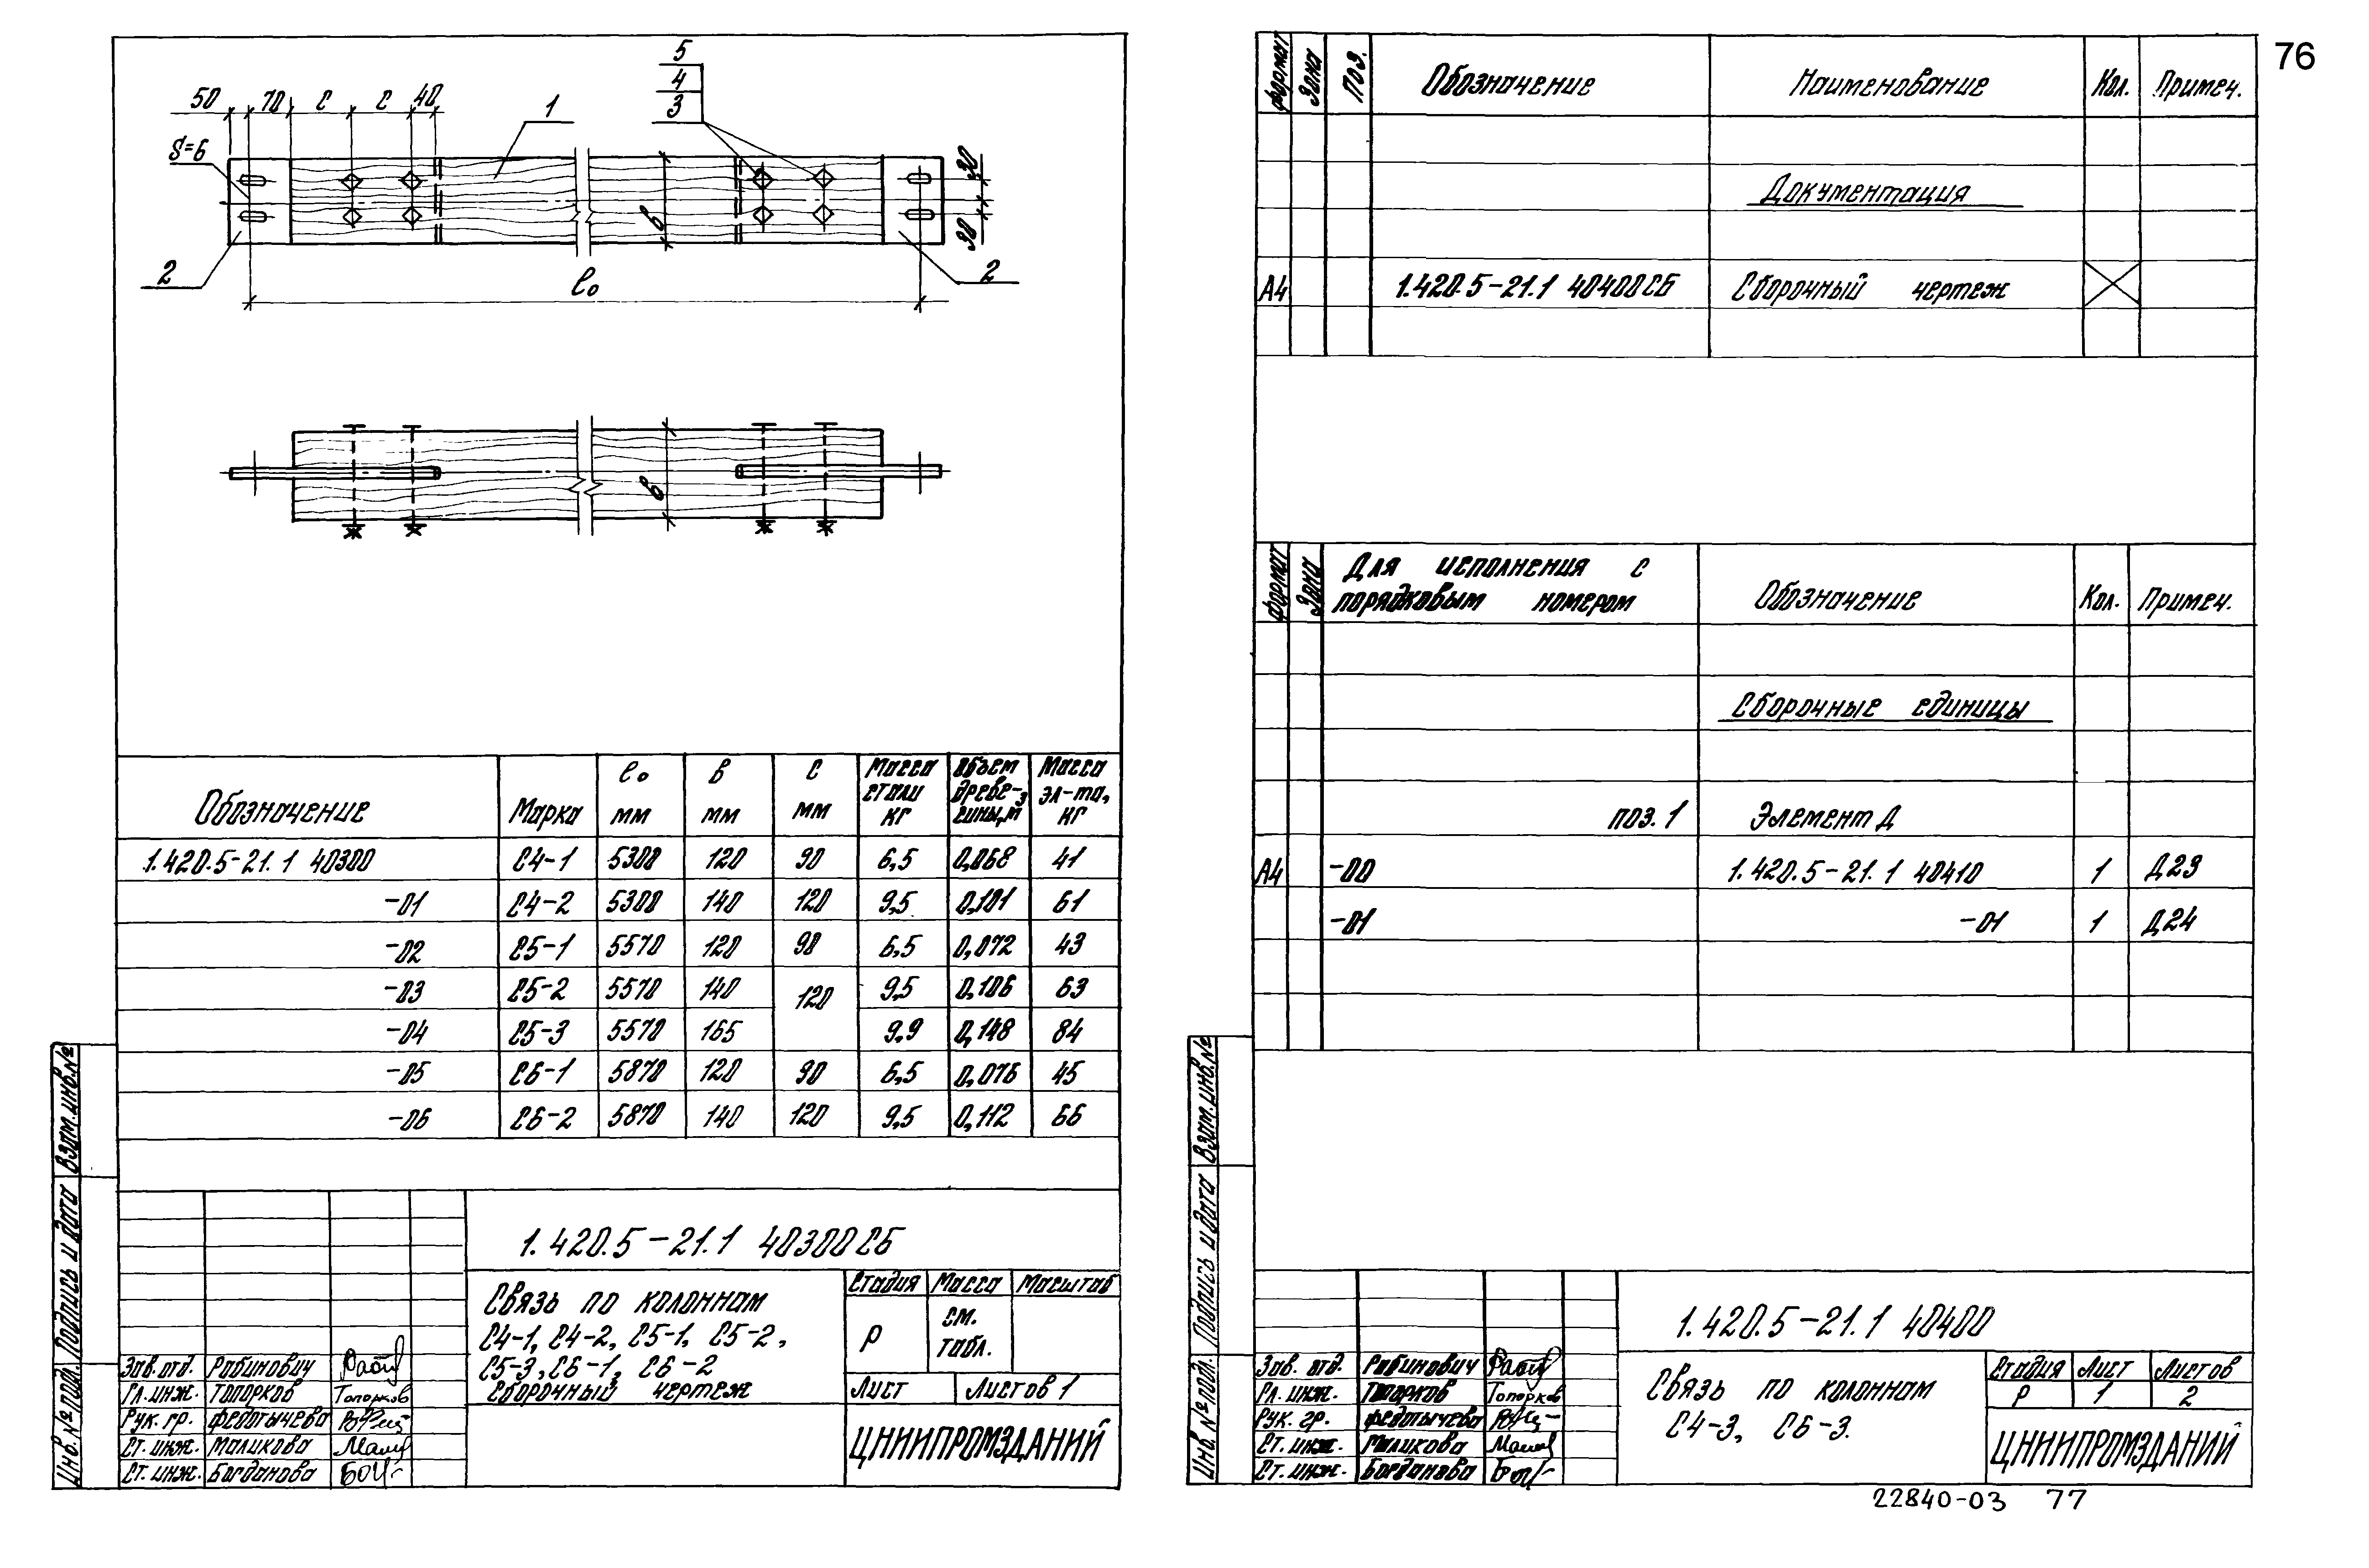 76
5
4
3
50 70 с с 40
1
S=6
30
30
в
2
2
ℓ₀
в
Обозначение Марка ℓ₀ мм в мм с мм Масса стали кг Объем древе-сины, м³ Масса эл-та, кг
1.420.5-21.1 40300 С4-1 5300 120 90 6,5 0,068 41
-01 С4-2 5300 140 120 9,5 0,101 61
-02 С5-1 5570 120 90 6,5 0,072 43
-03 С5-2 5570 140 120 9,5 0,106 63
-04 С5-3 5570 165 9,9 0,148 84
-05 С6-1 5870 120 90 6,5 0,076 45
-06 С6-2 5870 140 120 9,5 0,112 66
Инв. № подл. Подпись и дата Взам. инв. №
1.420.5-21.1 40300СБ
Связь по колоннам
С4-1, С4-2, С5-1, С5-2,
С5-3, С6-1, С6-2
Сборочный чертеж
Стадия Масса Масштаб
Р см. табл.
Лист Листов 1
ЦНИИПРОМЗДАНИЙ
Зав. отд. Рабинович
Гл. инж. Топорков Топорков
Рук. гр. Федотычева
Ст. инж. Маликова
Ст. инж. Богданова
Формат Зона Поз. Обозначение Наименование Кол. Примеч.
Документация
А4 1.420.5-21.1 40400СБ Сборочный чертеж
Формат Зона Для исполнения с порядковым номером Обозначение Кол. Примеч.
Сборочные единицы
поз. 1 Элемент Д
А4 -00 1.420.5-21.1 40410 1 Д23
-01 -01 1 Д24
Инв. № подл. Подпись и дата Взам. инв. №
1.420.5-21.1 40400
Связь по колоннам
С4-3, С6-3.
Стадия Лист Листов
Р 1 2
ЦНИИПРОМЗДАНИЙ
Зав. отд. Рабинович
Гл. инж. Топорков Топорков
Рук. гр. Федотычева
Ст. инж. Маликова
Ст. инж. Богданова
22840-03 77